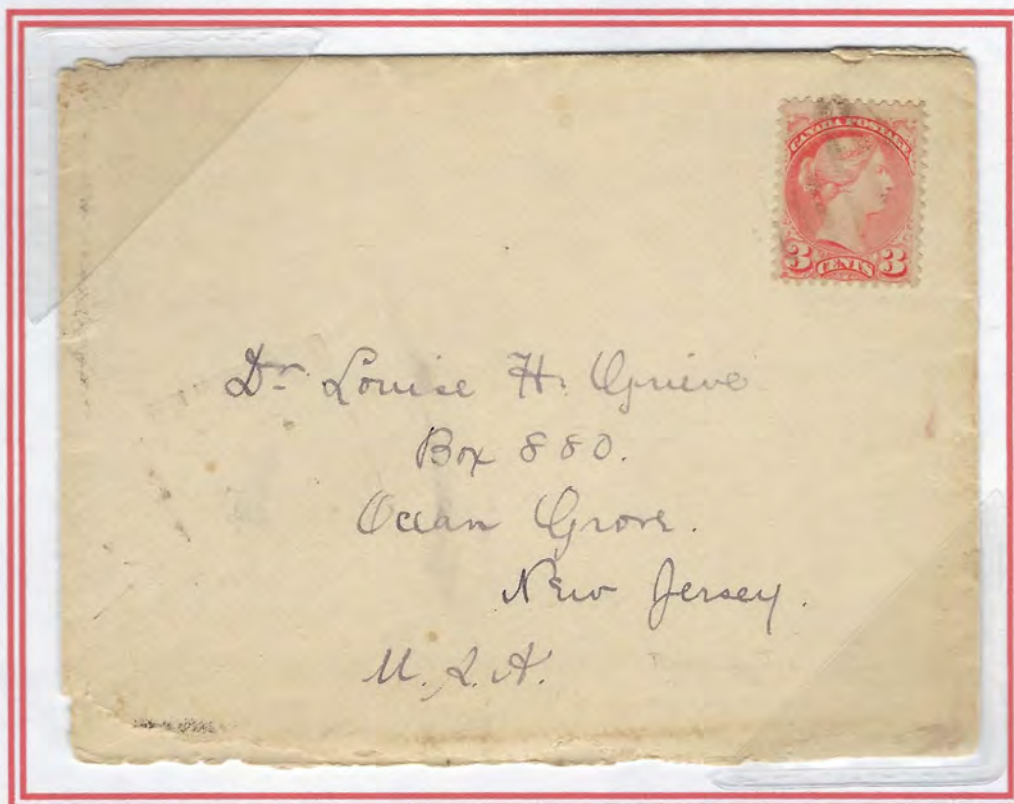 CANADA POSTAGE
3 CENTS 3
Dr. Louise H. Grieve
Box 880.
Ocean Grove.
New Jersey.
U.S.A.